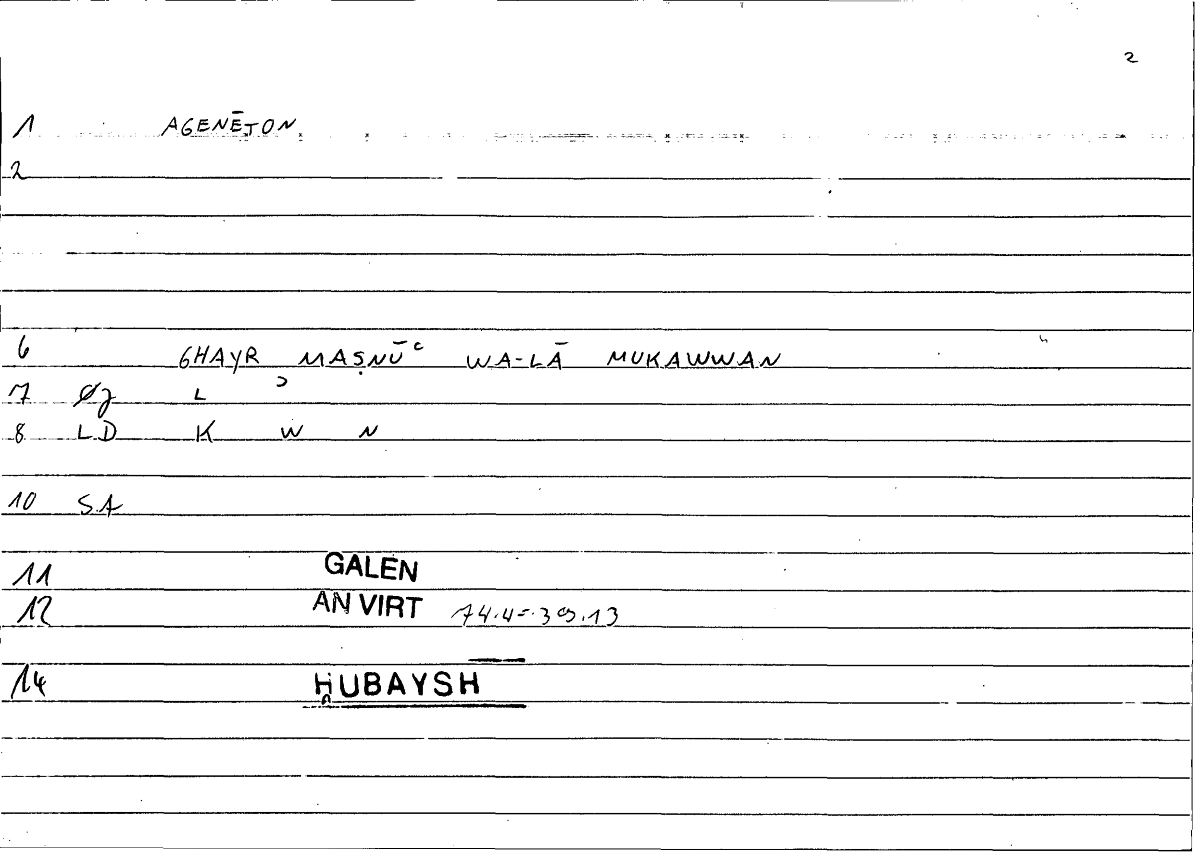 2
1 AGENĒTON
2
6 GHAYR MAṢNŪʿ WA-LĀ MUKAWWAN
7 L ʾ
8 LD K W N
10 SA
11 GALEN
12 AN VIRT
14 ḤUBAYSH